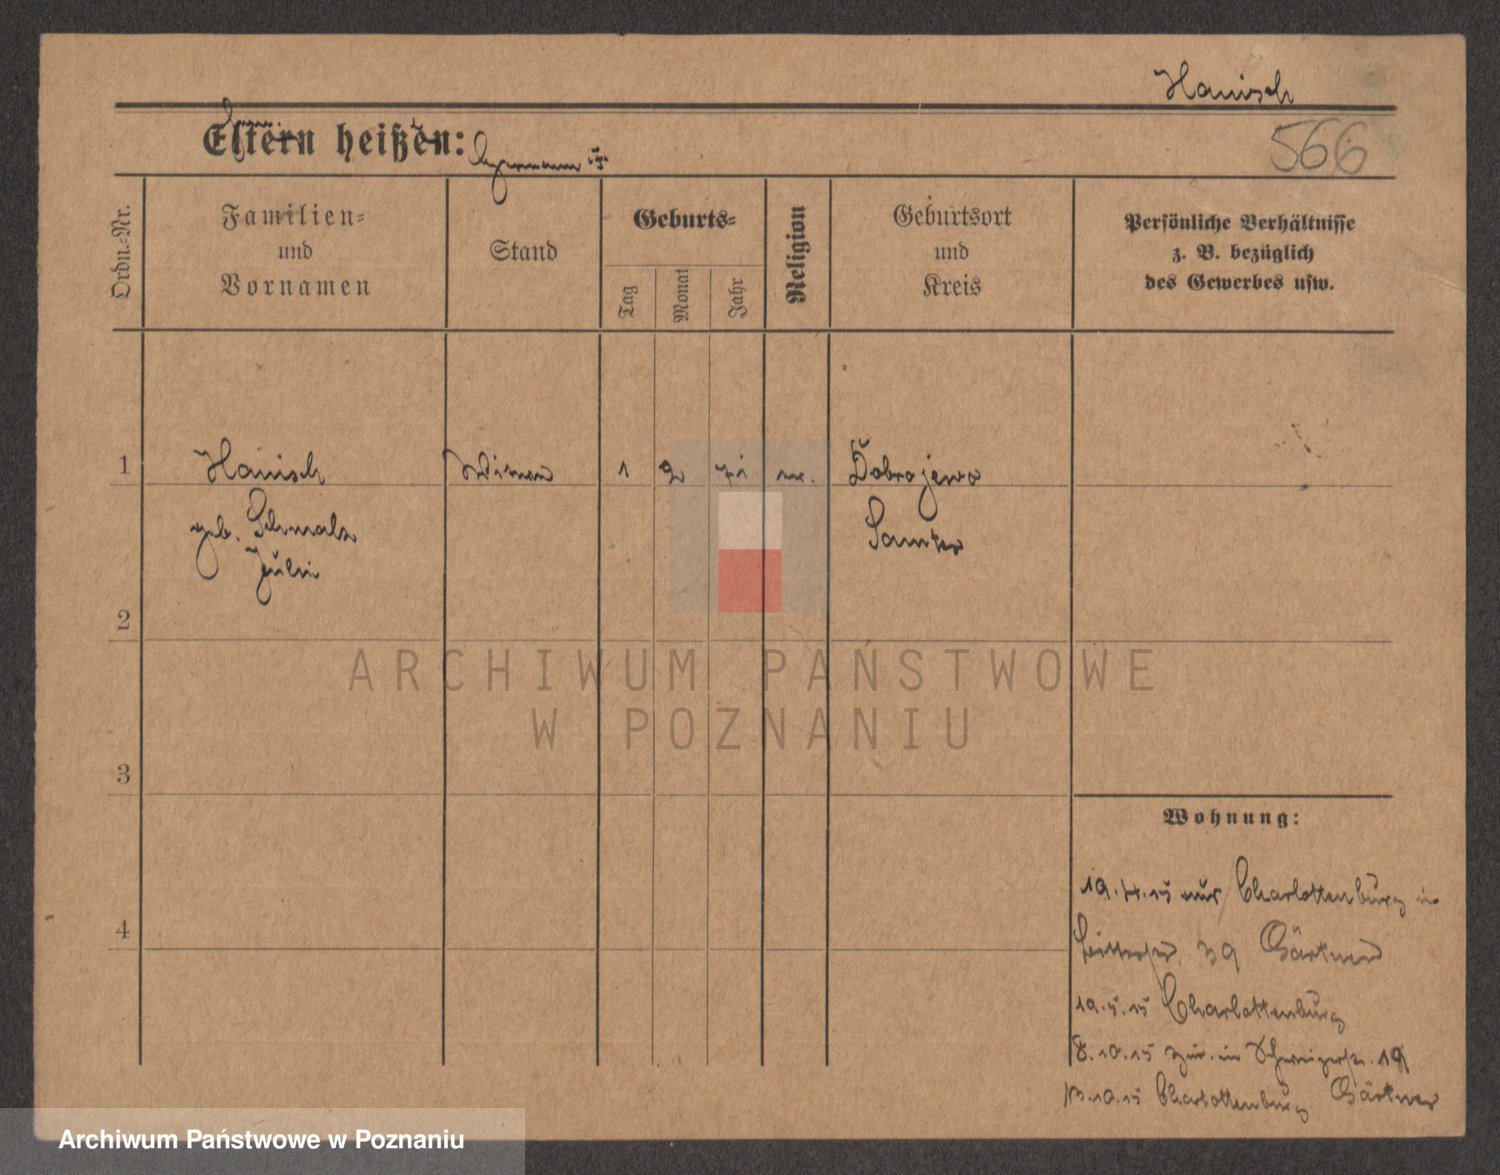 Hanisch
Eltern heißen:
566
Ordn.-Nr.
Familien-
und
Vornamen
Stand
Geburts-
Tag
Monat
Jahr
Religion
Geburtsort
und
Kreis
Persönliche Verhältnisse
z. B. bezüglich
des Gewerbes usw.
1 Hanisch 1 2 71 Dobrojewo
geb. Schmalz Samter
Juli
2
3
4
Wohnung:
19.4.15 aus Charlottenburg in
39 Gärtner
19.5.15 Charlottenburg
8.10.15 zur. in 19
13.10.15 Charlottenburg Gärtner
ARCHIWUM PAŃSTWOWE
W POZNANIU
Archiwum Państwowe w Poznaniu